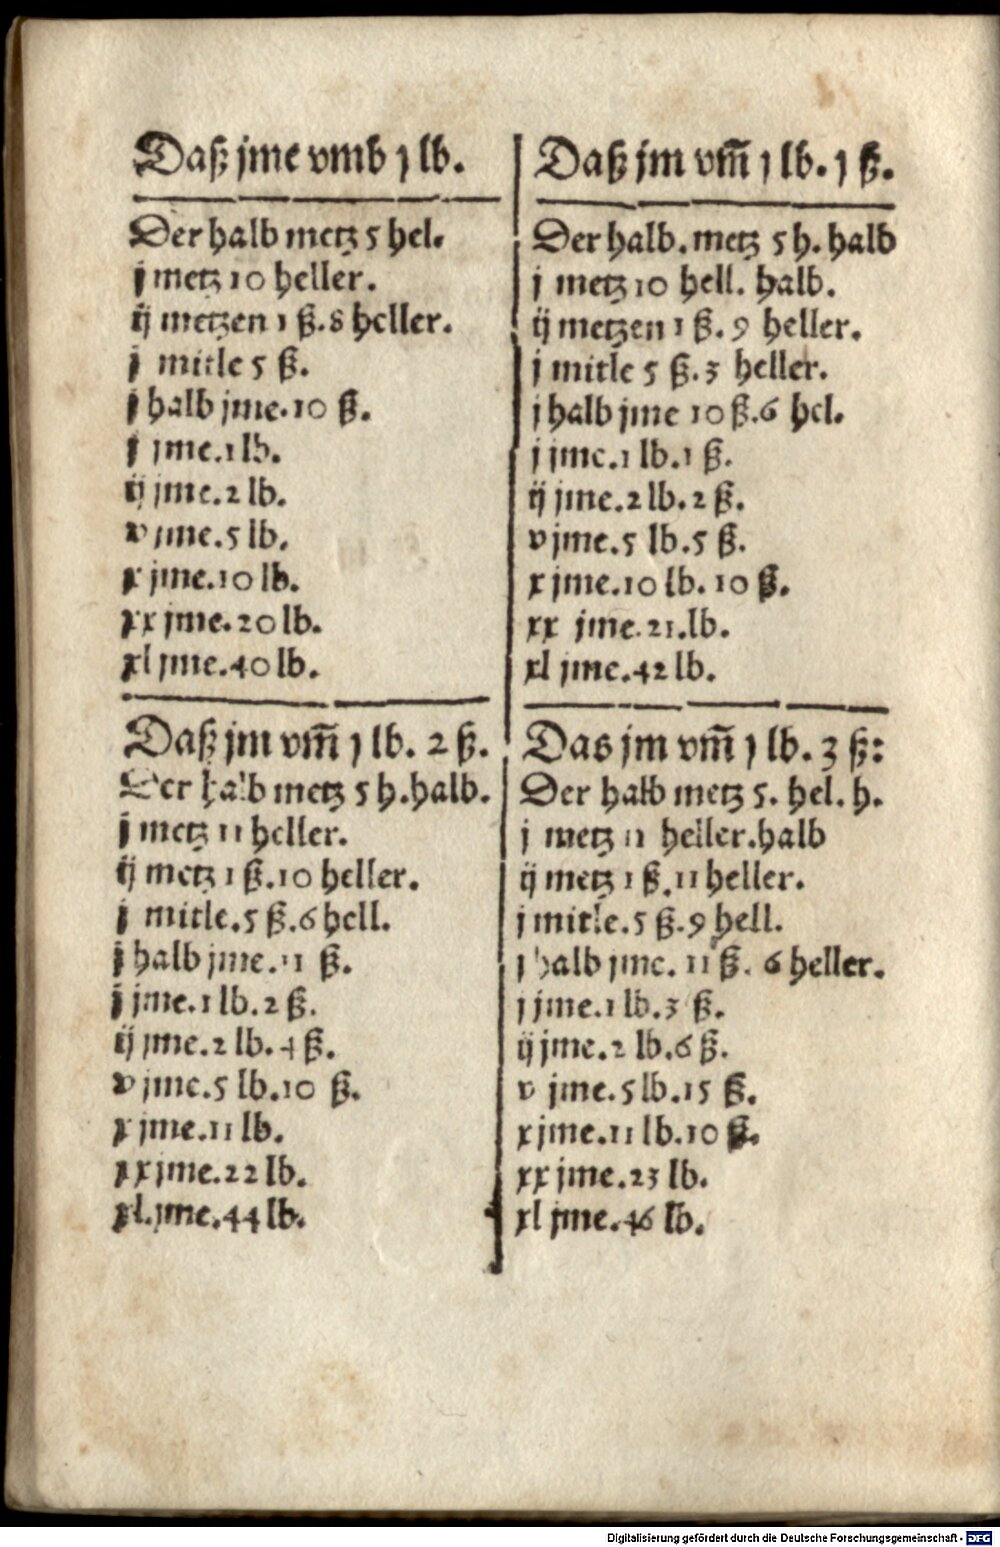 Daß jme vmb j lb.
Der halb metz 5 hel.
j metz 10 heller.
ij metzen 1 ß. 8 heller.
j mitle 5 ß.
j halb jme. 10 ß.
j jme. 1 lb.
ij jme. 2 lb.
v jme. 5 lb.
x jme. 10 lb.
xx jme. 20 lb.
xl jme. 40 lb.
Daß jm vm̄ j lb. j ß.
Der halb. metz 5 h. halb
j metz 10 hell. halb.
ij metzen 1 ß. 9 heller.
j mitle 5 ß. 3 heller.
j halb jme 10 ß. 6 hel.
j jme. 1 lb. 1 ß.
ij jme. 2 lb. 2 ß.
v jme. 5 lb. 5 ß.
x jme. 10 lb. 10 ß.
xx jme. 21. lb.
xl jme. 42 lb.
Daß jm vm̄ j lb. 2 ß.
Der halb metz 5 h. halb.
j metz 11 heller.
ij metz 1 ß. 10 heller.
j mitle. 5 ß. 6 hell.
j halb jme. 11 ß.
j jme. 1 lb. 2 ß.
ij jme. 2 lb. 4 ß.
v jme. 5 lb. 10 ß.
x jme. 11 lb.
xx jme. 22 lb.
xl. jme. 44 lb.
Das jm vm̄ j lb. 3 ß:
Der halb metz 5. hel. h.
j metz 11 heller. halb
ij metz 1 ß. 11 heller.
j mitle. 5 ß. 9 hell.
j halb jme. 11 ß. 6 heller.
j jme. 1 lb. 3 ß.
ij jme. 2 lb. 6 ß.
v jme. 5 lb. 15 ß.
x jme. 11 lb. 10 ß.
xx jme. 23 lb.
xl jme. 46 lb.
Digitalisierung gefördert durch die Deutsche Forschungsgemeinschaft - DFG